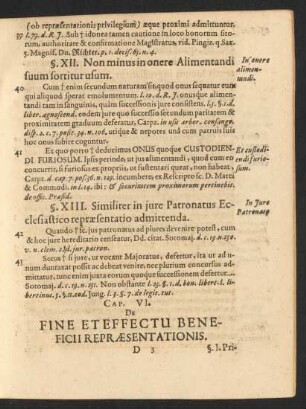 (ob repræsentationis privilegium) æque proximi admittuntur.
39 l. 73. d. R. J. Sub † idonea tamen cautione in loco bonorum sito-
rum, authoritate & confirmatione Magistratus, vid. Pingiz. q Sax.
7. Magnif. Dn. Richter. p. 1. decis. 85. n. 4.
§. XII. Non minus in onere Alimentandi
suum sortitur usum.
In onere
alimen-
tandi.
40 Cum † enim secundum naturam sit, quod onus sequatur eum
qui aliquod sperat emolumentum. l. 10. d. R. J. onusque alimentan-
di tam in sanguinis, quàm successionis jure consistens. l. 5. §. 1. d.
liber. agnoscend. eodem jure quo successio secundum paritatem &
proximitatem graduum deferatur, Carpz. in usu arbor. consangv.
disp. 2. c. 7. posit. 34. n. 106. utique & nepotes unà cum patruis suis
hoc onus subire coguntur.
41 Ex quo porro † deducimus ONUS quoque CUSTODIEN-
DI FURIOSUM. Ipsis perinde, ut jus alimentandi, quod cum eo
concurrit, si furiosus ex propriis, ut sustentari queat, non habeat,
Carpz. d. cap. 7. pos. 36. n. 123. incumbere, ex Rescripto sc. D. Marci
& Commodi. in l. 14. ibi: & securitatem proximorum pertinebit.
de offic. Præsid.
Et custodi-
endi furio-
sum.
§. XIII. Similiter in jure Patronatus Ec-
clesiastico repræsentatio admittenda.
In Jure
Patronatus
42 Quando † sc. jus patronatus ad plures devenire potest, cum
& hoc jure hereditario censeatur, Dd. citat. Sotomaj. d. c. 19. n. 150.
v. n. clem. 2. hî. jur. patron.
43 Secus † si jure, ut vocant Majoratus, defertur, ita ut ad u-
num duntaxat possit ac debeat venire, nec plurium concursus ad-
mittatur, tunc enim juxta eorum quoque successionem defertur.
Sotomaj. d. c. 19. n. 151. Non obstante l. 23. §. 1. d. bon. libert. l. si
libertinus. 5. §. 2. eod Jung. l. 3. §. 7. de legit. tut.
CAP. VI.
DE
FINE ET EFFECTU BENE-
FICII REPRÆSENTATIONIS.
D 3
§. I. Pri-